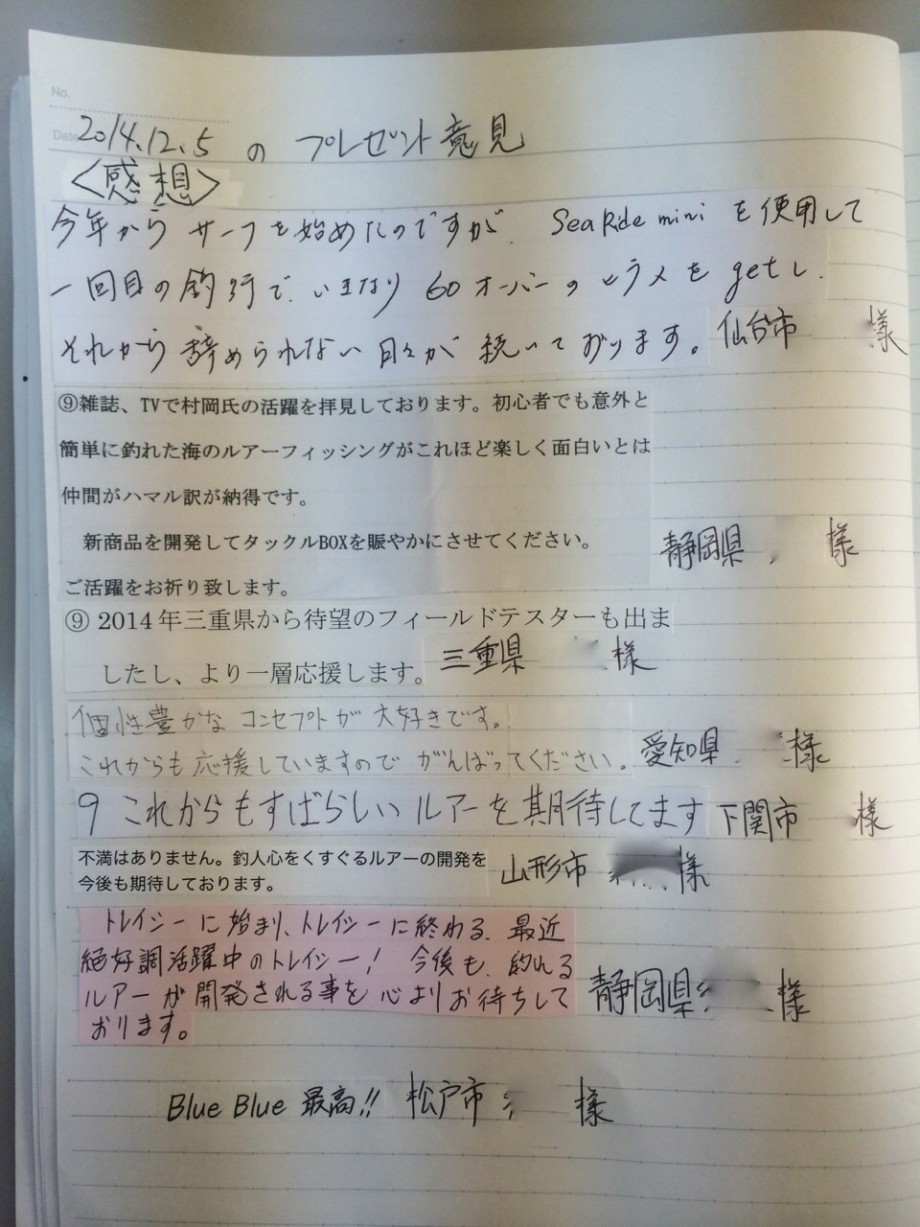 No.
Date 2014.12.5 の プレゼント意見
<感想>
今年から サーフを始めたのですが、SeaRide mini を使用して
一回目の釣行で、いきなり 60オーバーのヒラメをgetし、
それから辞められない日々が続いております。仙台市 様
⑨雑誌、TVで村岡氏の活躍を拝見しております。初心者でも意外と
簡単に釣れた海のルアーフィッシングがこれほど楽しく面白いとは
仲間がハマル訳が納得です。
新商品を開発してタックルBOXを賑やかにさせてください。
静岡県 様
ご活躍をお祈り致します。
⑨ 2014年三重県から待望のフィールドテスターも出ま
したし、より一層応援します。三重県 様
個性豊かな コンセプトが 大好きです。
これからも応援していますので がんばってください。愛知県 様
9 これからもすばらしいルアーを期待してます 下関市 様
不満はありません。釣人心をくすぐるルアーの開発を
今後も期待しております。 山形市 様
トレイシーに始まり、トレイシーに終わる、最近
絶好調活躍中のトレイシー! 今後も、釣れる
ルアーが開発される事を心よりお待ちして
おります。 静岡県 様
Blue Blue 最高!! 松戸市 様